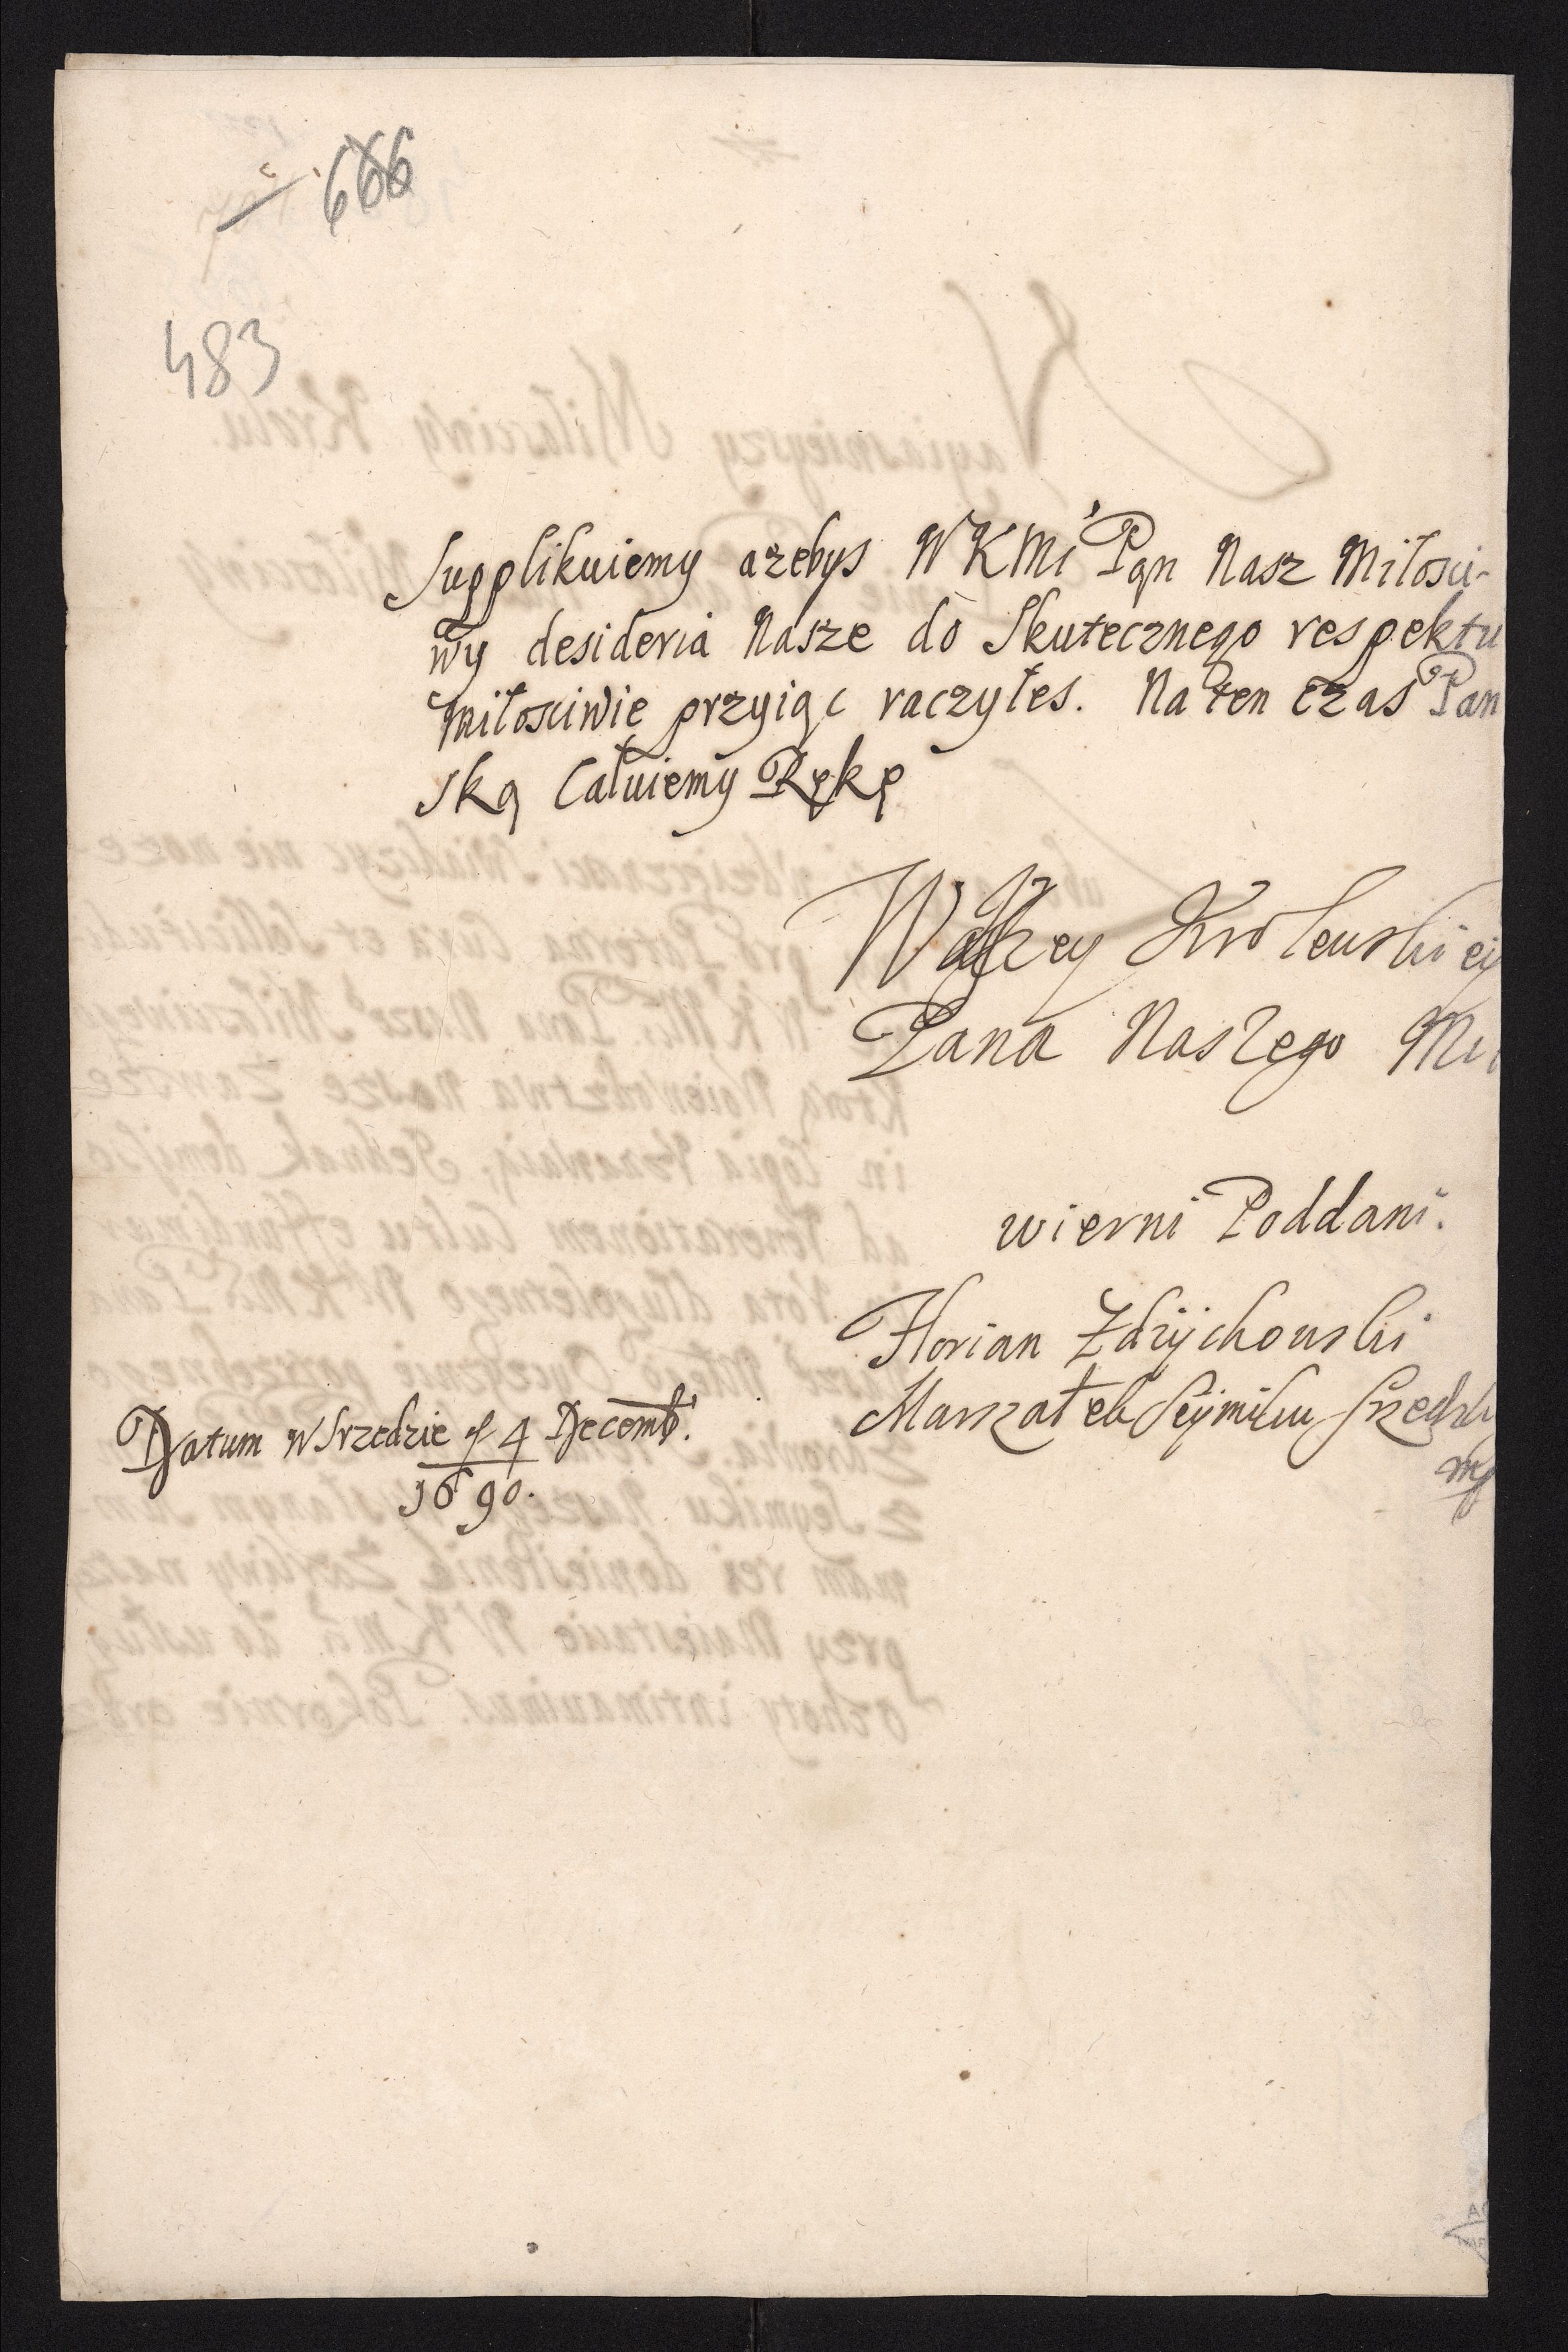 666
483
Supplikuiemy azebys WKMci Pan Nasz Miłości-
wy desideria Nasze do Skutecznego respektu
Miłosciwie przyiąc raczyłes. Na ten czas Pan
ską Całuiemy Rękę
Waszey Krolewskiey
Pana Naszego
wierni Poddani.
Florian Zdzychowski
Marszałek Seymiku
Datum w Srzedzie 4 Decemb.
1690.